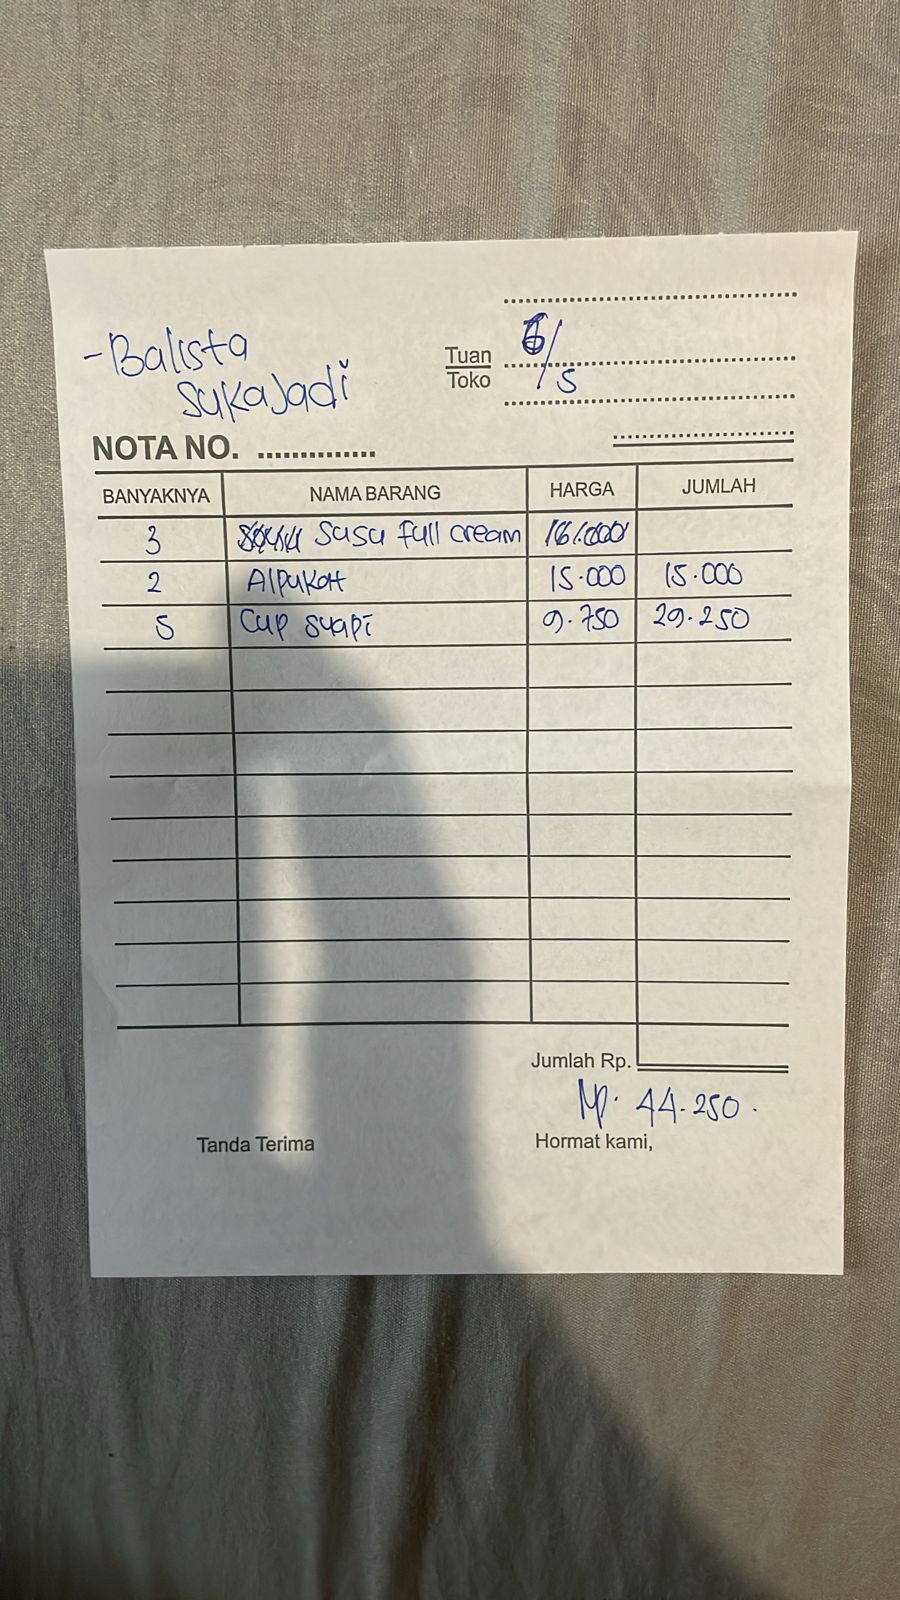 -Balista
Sukajadi
Tuan
Toko
6/5
NOTA NO. ..............
BANYAKNYA NAMA BARANG HARGA JUMLAH
3 Susu full cream
2 Alpukat 15.000 15.000
5 Cup syapi 9.750 29.250
Jumlah Rp.
Rp. 44.250.
Tanda Terima Hormat kami,